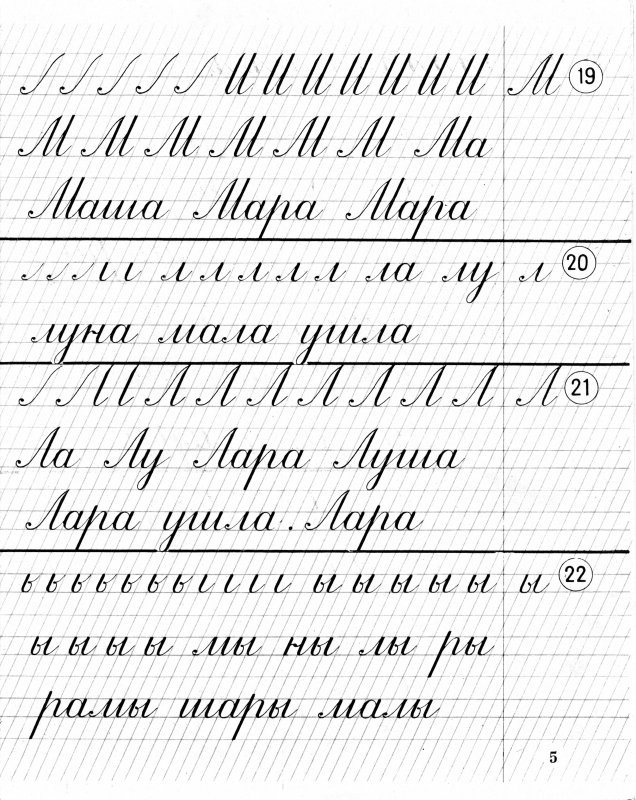 М 19
М М М М М М Ма
Маша Мара Мара
л л л л л ла лу л 20
луна мала ушла
Л Л Л Л Л Л Л Л 21
Ла Лу Лара Луша
Лара ушла. Лара
ь ь ь ь ь ь ь ı ı ı ı ы ы ы ы ы ы 22
ы ы ы ы мы ны лы ры
рамы шары малы
5